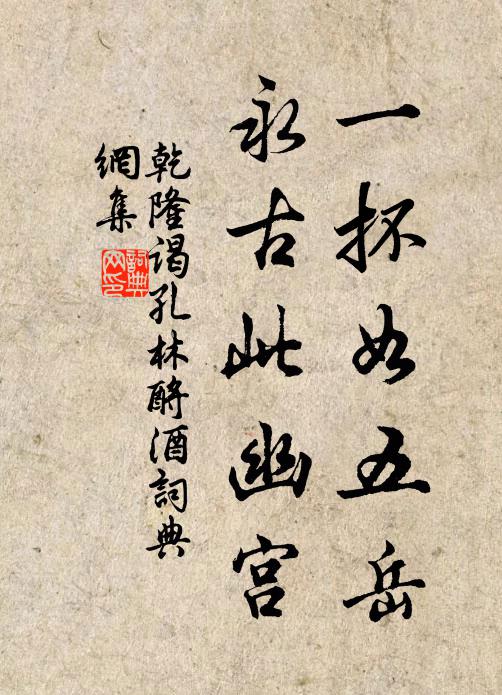 一抔如五岳
永古此幽宫
乾隆谒孔林酹酒詞典
網集
詞典
网印